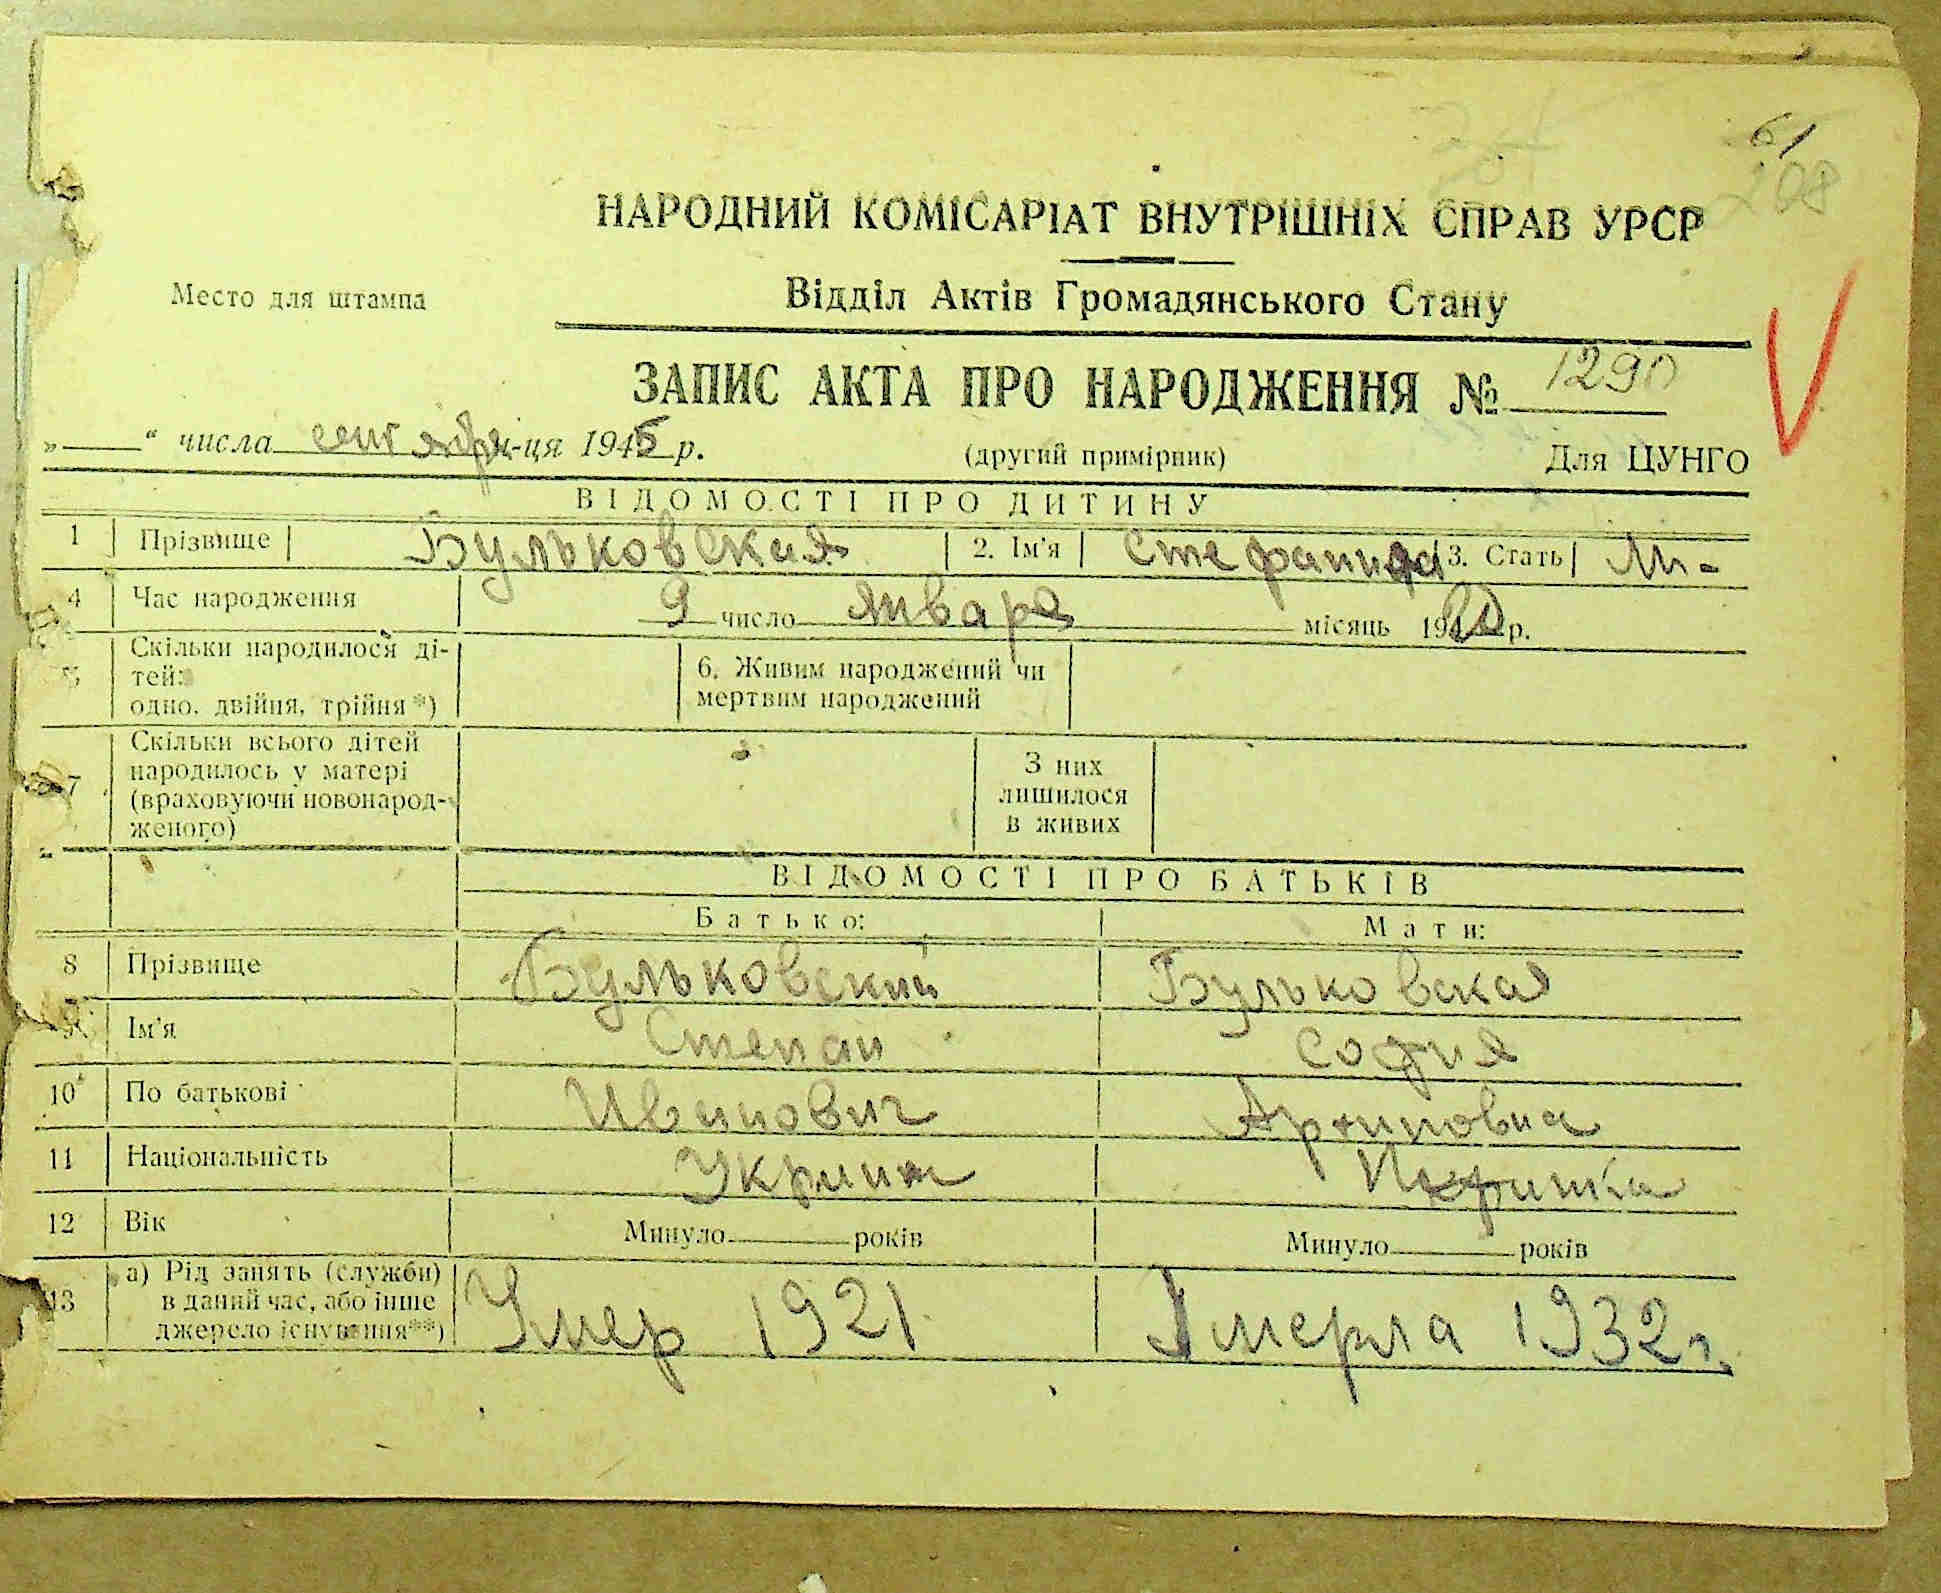 61
208
НАРОДНИЙ КОМІСАРІАТ ВНУТРІШНІХ СПРАВ УРСР
Место для штампа
Відділ Актів Громадянського Стану
ЗАПИС АКТА ПРО НАРОДЖЕННЯ № 1290
„ “ числа сентября-ця 1945 р. (другий примірник) Для ЦУНГО
ВІДОМОСТІ ПРО ДИТИНУ
1 Прізвище Бульковская 2. Ім'я Стефанида 3. Стать М-
4 Час народження 9 число января місяць 19 р.
5 Скільки народилося ді-
тей:
одно, двійня, трійня *)
6. Живим народжений чи
мертвим народжений
7 Скільки всього дітей
народилось у матері
(враховуючи новонарод-
женого)
З них
лишилося
в живих
ВІДОМОСТІ ПРО БАТЬКІВ
Батько: Мати:
8 Прізвище Бульковский Бульковская
9 Ім'я Степан София
10 По батькові Иванович Архиповна
11 Національність
12 Вік Минуло років Минуло років
13 а) Рід занять (служби)
в даний час, або інше
джерело існування**)
Умер 1921 Умерла 1932 г.